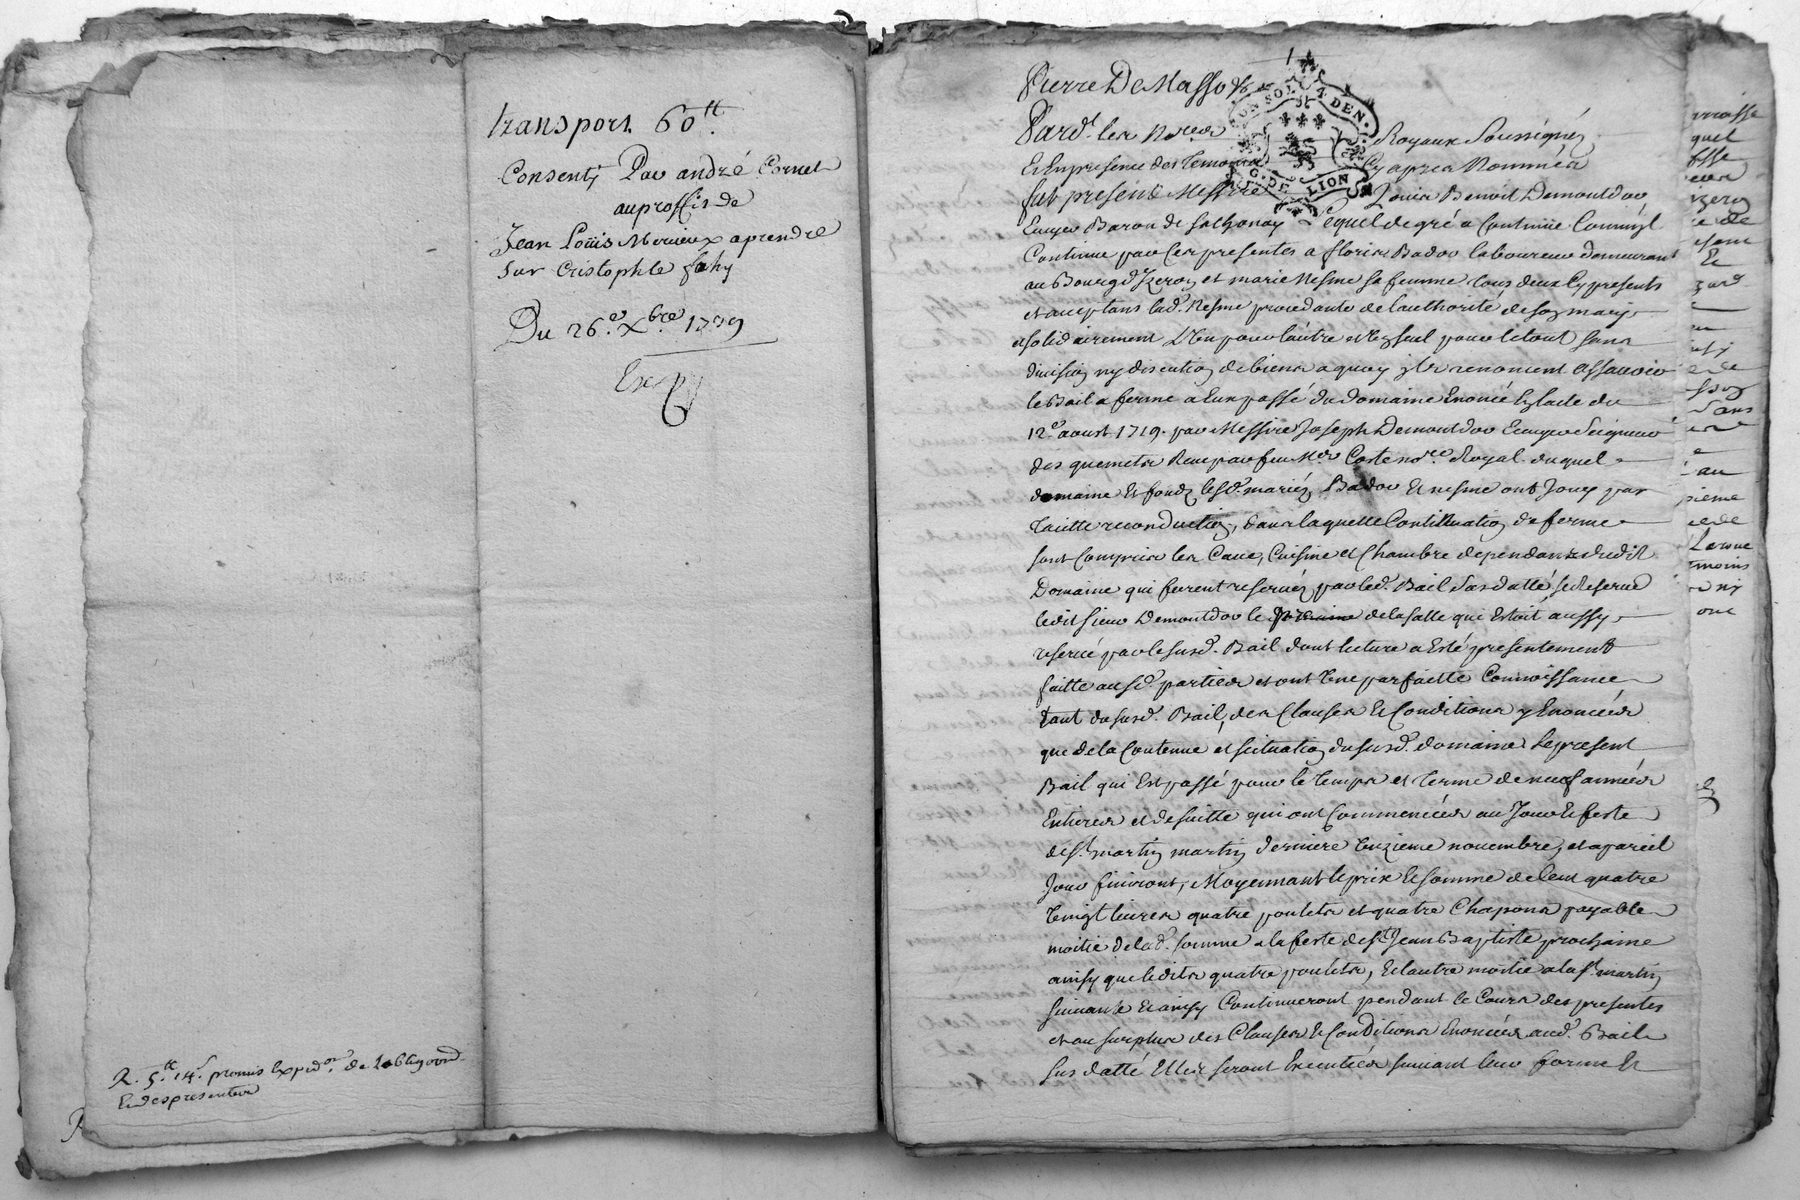 transport 60tt.
Consenty Par andré Cornet
auproffit de
Jean Loüis Merieux aprendre
sur Cristophle fahy
Du 26.e Xbre 1729
R. 5.tt 14.s promis Expedon. de
Et des presentes
Pierre De Masso
Pard.t les Nores Royaux Soussignés
Et En presence des Temoins Cy apres Nommés
fut present Messire Louis Benoit Demontdor
Ecuyer Baron de Sathonay Lequel de gré a Continüé Comm'jl
Continue par Ces presentes a floris Bador laboureur demeurant
au Bourg d'Izeron et marie Nesme sa femme tous deux Cy presents
et acceptans lad. Nesme procedante de l'authorité de son mary
solidairement L'Un pour l'autre et Un seul pour le tout sans
division ny discution de biens a quoy jls renoncent Assavoir
le Bail a ferme a Eux passé du domaine Enoncé En l'acte du
12e aoust 1719. par Messire Joseph Demontdor Ecuyer Seigneur
des Reçu par feu Me Coste nore. Royal duquel
domaine Et fondz lesd. mariéz Bador Et nesme ont Jouy par
tacitte reconduction, dans laquelle Continuation de ferme
sont Compris les Cave, Cuisine et Chambre dependants dudit
Domaine qui furent reservéz par led. Bail Sus datté, se Reserve
ledit sieur Demontdor le de la salle qui Estoit aussy
reservé par le susd. Bail dont lecture a Esté presentement
faitte ausd. parties et ont Une parfaitte Connoissance
tant du susd. Bail, des Clauses Et Conditions y Enoncées
que de la Contenue et scituation du susd. domaine Le present
Bail qui Est passé pour le temps et terme de neuf années
Entieres et de suitte qui ont Commencées au Jour Et feste
de St. martin martin derniere Unzieme novembre, et a pareil
Jour finiront, Moyennant le prix Et somme de Cent quatre
Vingt livres quatre poulets et quatre Chapons payable
moitié de lad. somme a la feste de St. Jean Baptiste prochaine
ainsy que lesdits quatre poulets, Et l'autre moitié a la St. martin
suivante Et ainsy Continueront pendant le Cours des presentes
et au surplus des Clauses Et Conditions Enoncées aud. Bail
Sus datté Elles seront Executées suivant leur forme Et